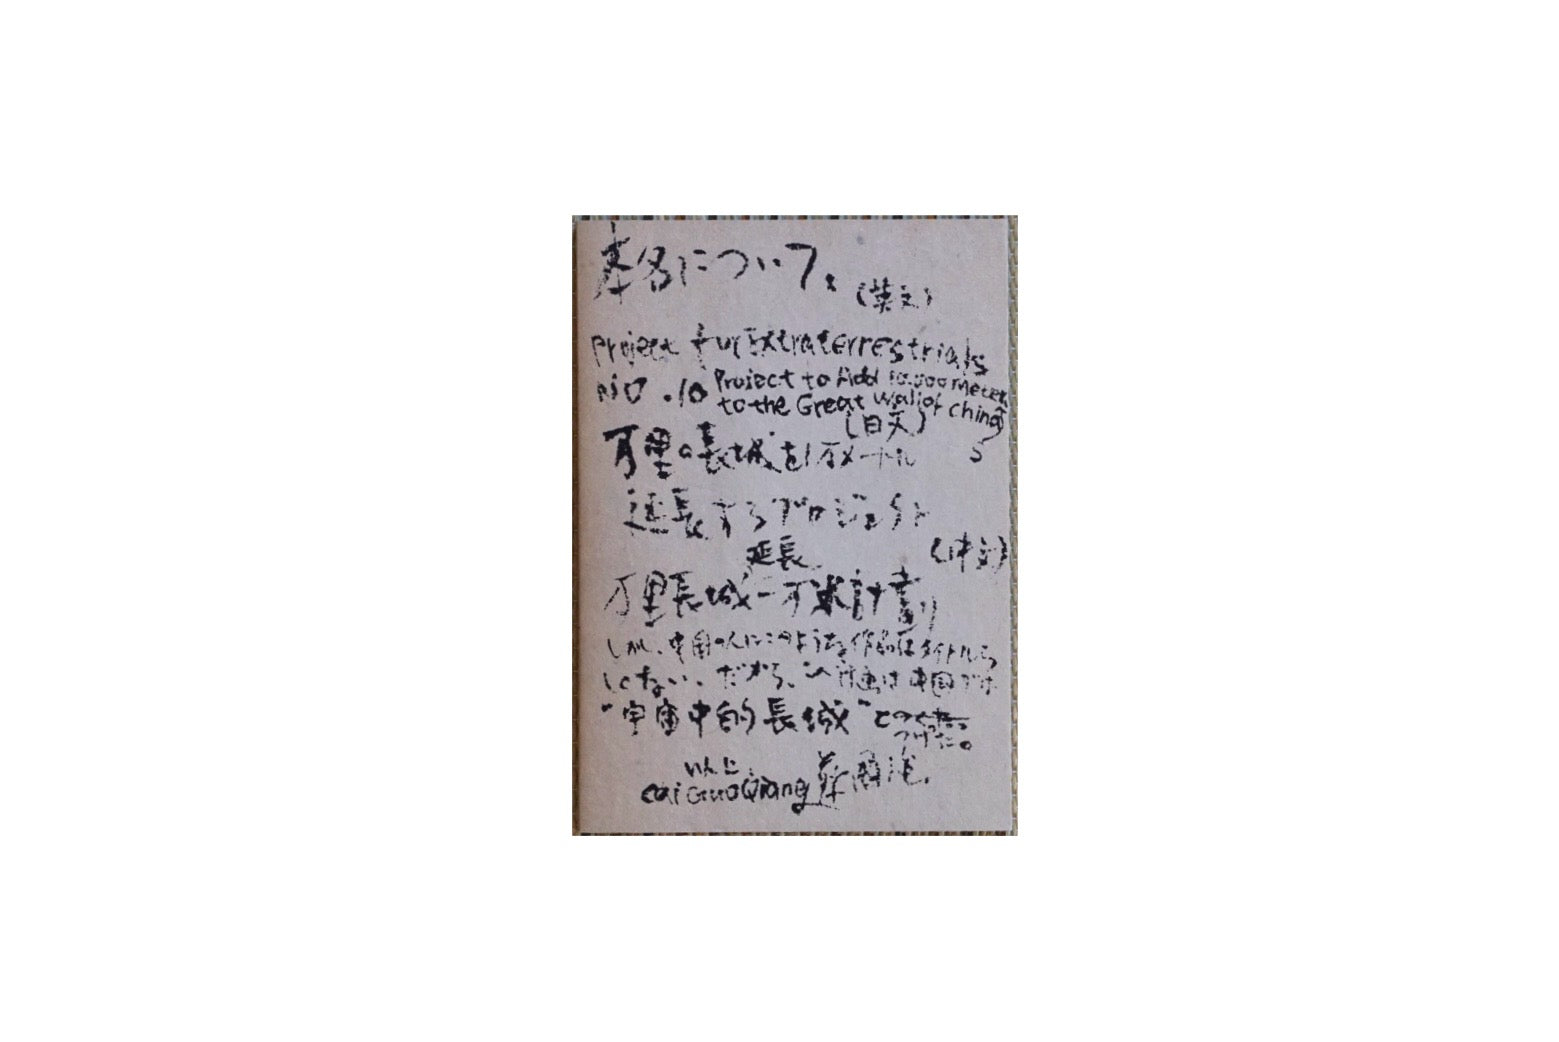 本名について。
(英文)
Project fur Extraterrestrials
NO.10 Project to Add 10,000 Meters
to the Great Wall of China
(日文)
万里の長城を1万メートル
延長するプロジェクト
(中文)
延長
万里長城一万米計劃
しかし、中国の人にこのような作品はタイトルら
しくない、だから、この計画は中国では
"宇宙中的長城"
つけた。
以上.
Cai Guo Qiang 蔡國強